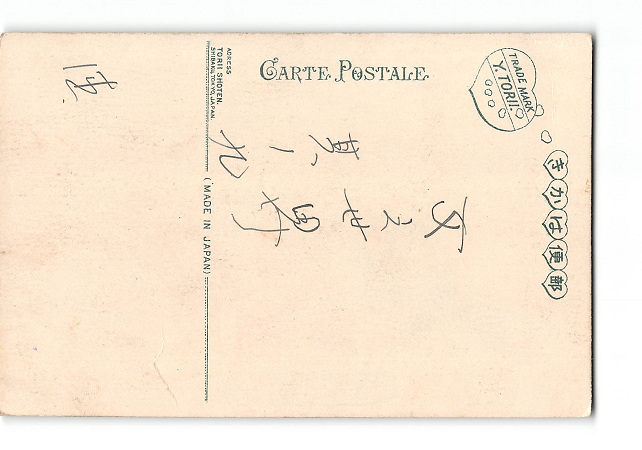 CARTE POSTALE
TRADE MARK
Y. TORII.
郵便はかき
ADRESS
TORII SHOTEN.
SHIBAKU, TOKYO, JAPAN.
(MADE IN JAPAN)
其ノ九